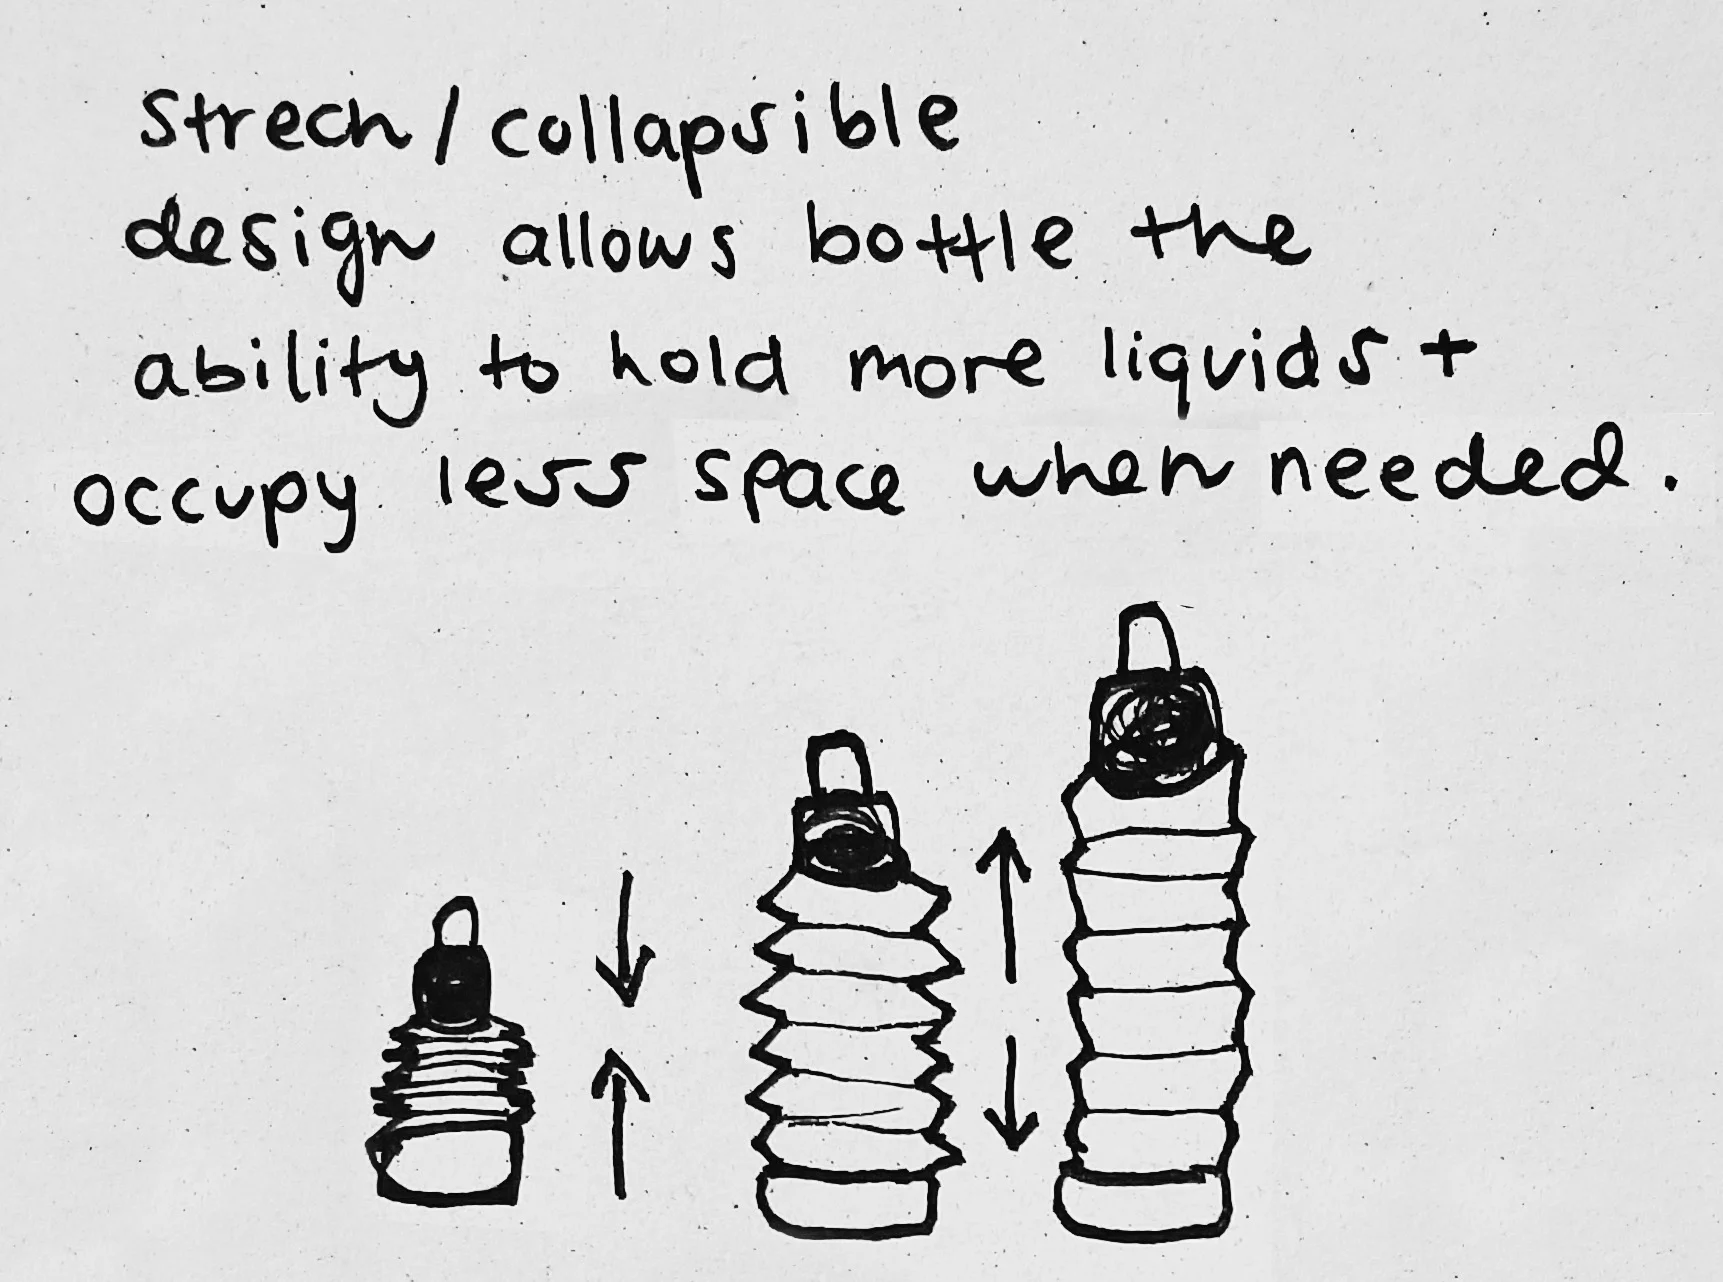 Strech/collapsible
design allows bottle the
ability to hold more liquids +
occupy less space when needed.